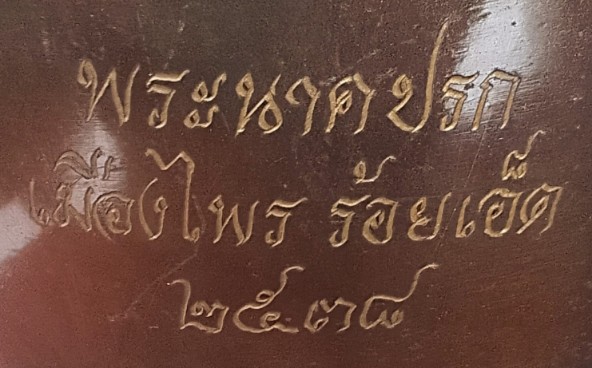 พระนาคปรก
เมืองไพร ร้อยเอ็ด
๒๕๓๘